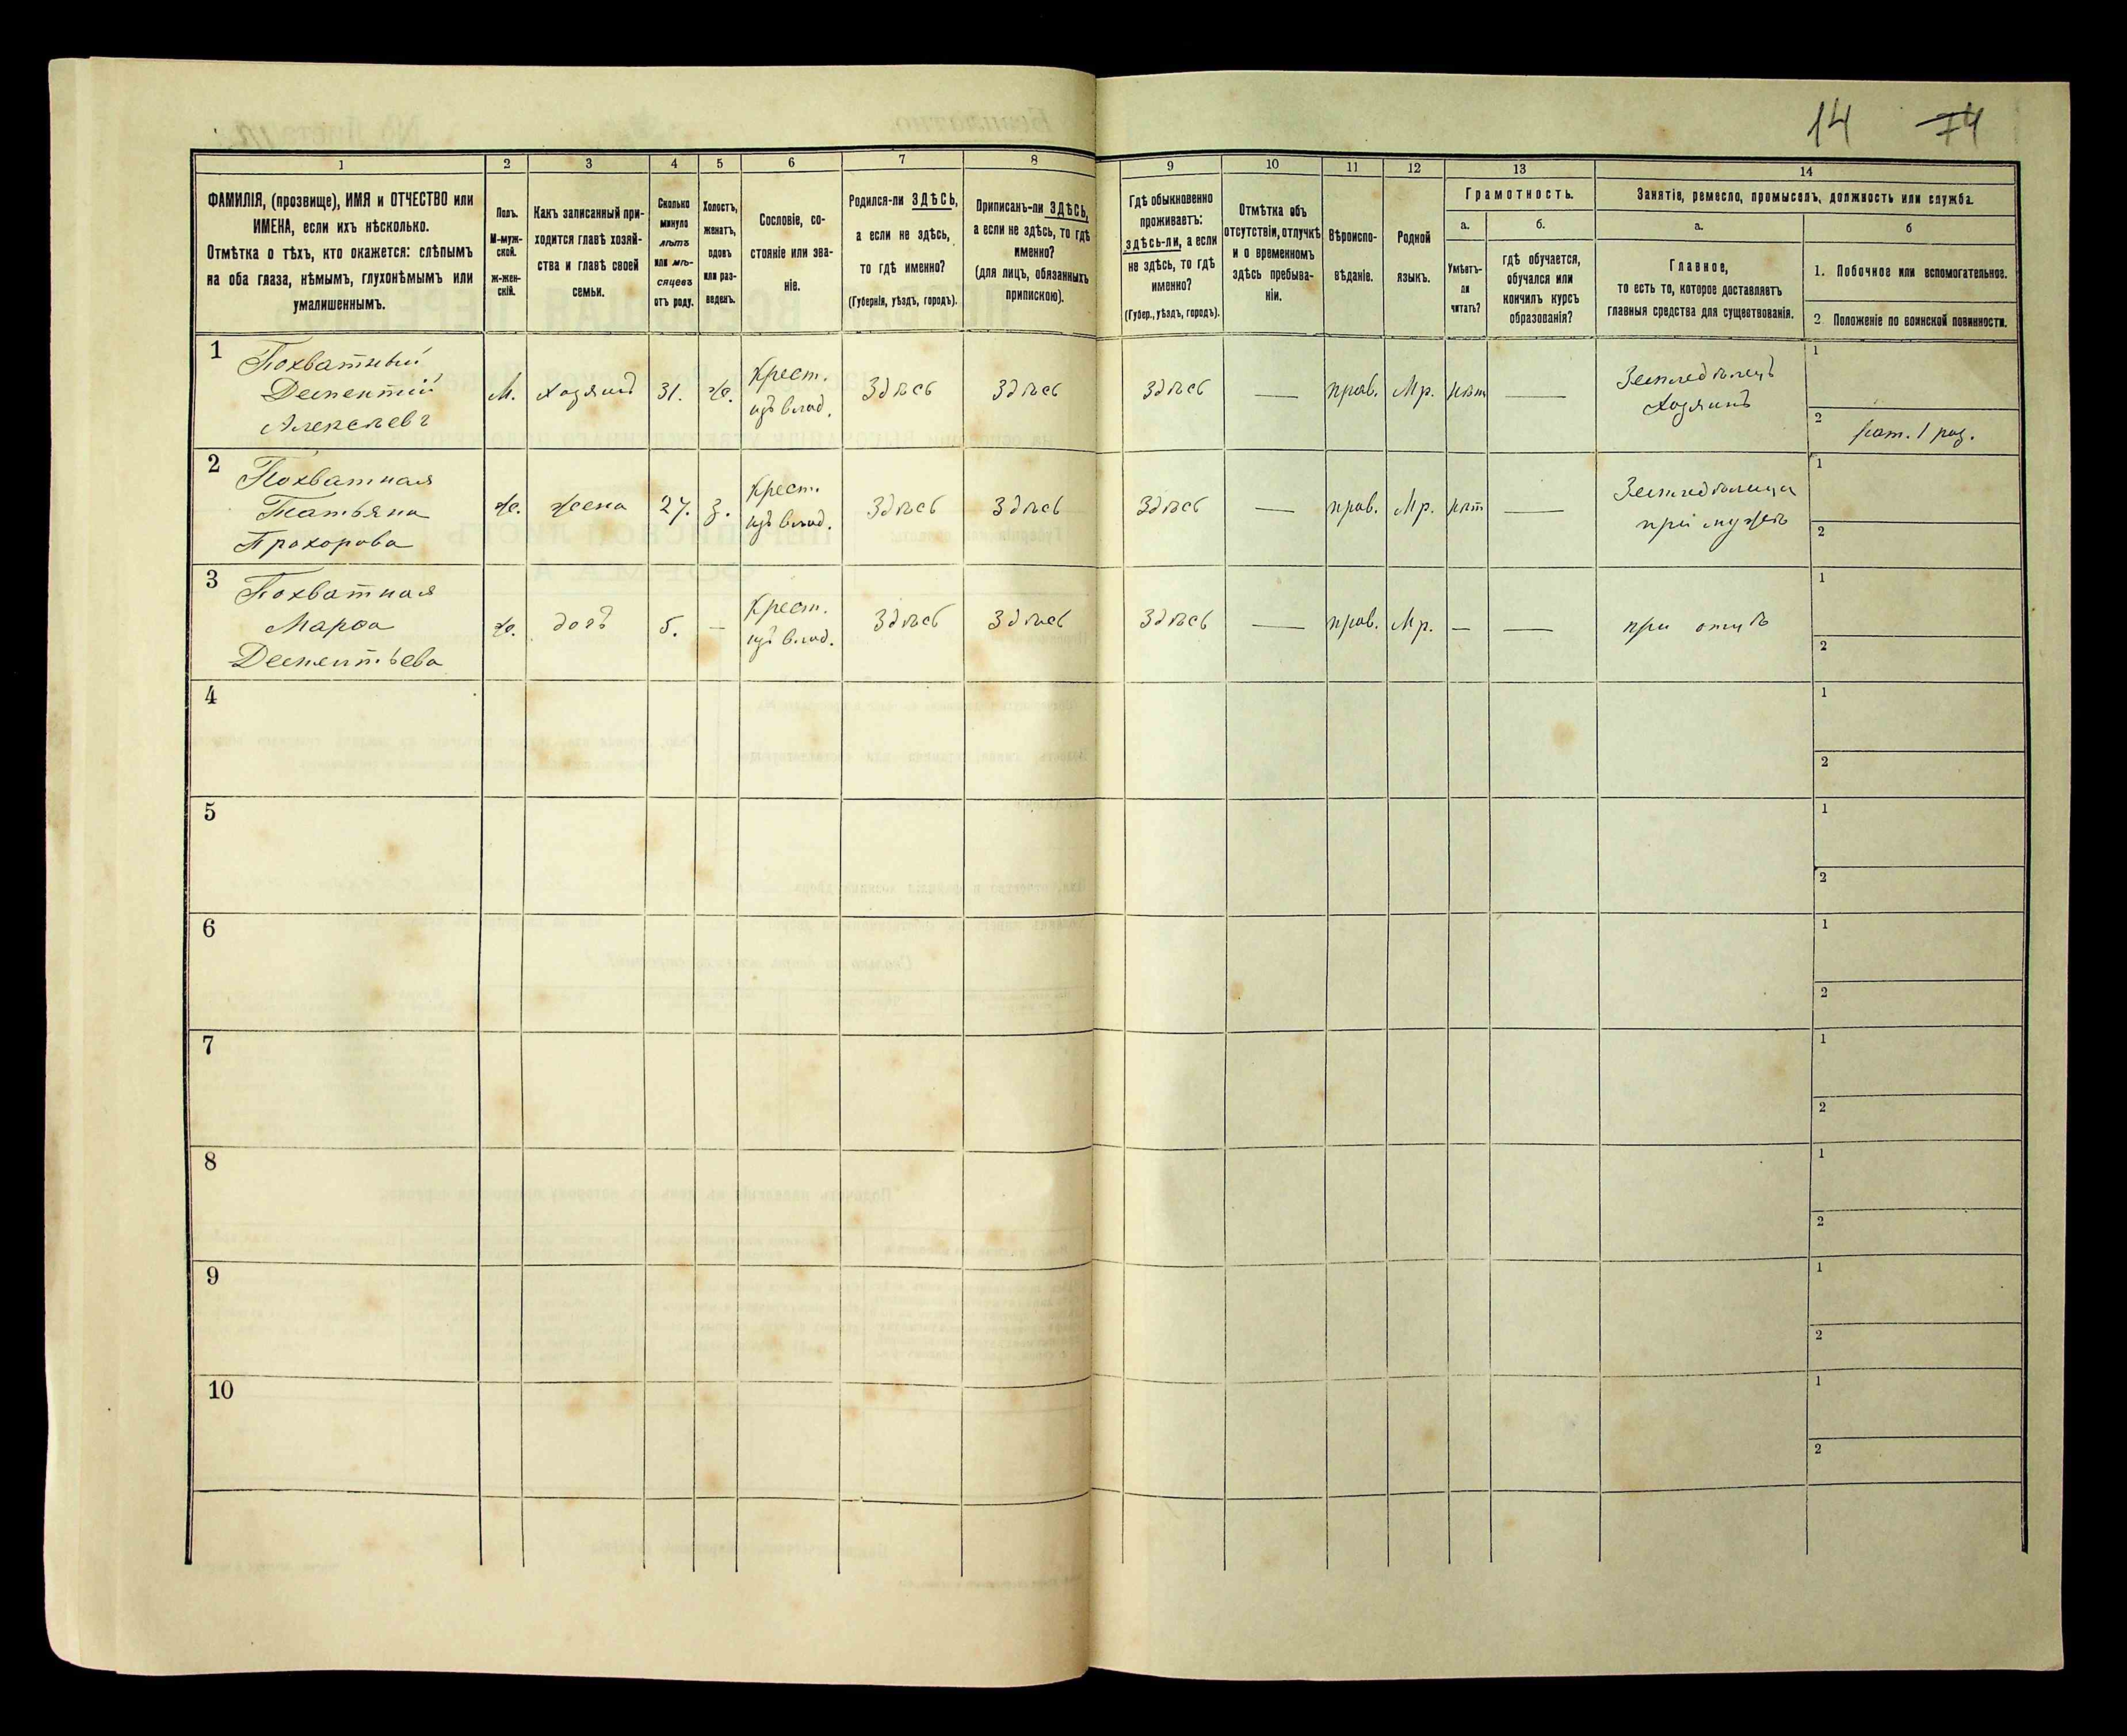 14 74
1 2 3 4 5 6 7 8 9 10 11 12 13 14
ФАМИЛІЯ, (прозвище), ИМЯ и ОТЧЕСТВО или
ИМЕНА, если ихъ нѣсколько.
Отмѣтка о тѣхъ, кто окажется: слѣпымъ
на оба глаза, нѣмымъ, глухонѣмымъ или
умалишеннымъ.
Полъ.
М-муж-
ской.
ж-жен-
скій.
Какъ записанный при-
ходится главѣ хозяй-
ства и главѣ своей
семьи.
Сколько
минуло
лѣтъ
или мѣ-
сяцевъ
отъ роду.
Холостъ,
женатъ,
вдовъ
или раз-
веденъ.
Сословіе, со-
стояніе или зва-
ніе.
Родился-ли ЗДѢСЬ,
а если не здѣсь,
то гдѣ именно?
(Губернія, уѣздъ, городъ).
Приписанъ-ли ЗДѢСЬ,
а если не здѣсь, то гдѣ
именно?
(для лицъ, обязанныхъ
припискою).
Гдѣ обыкновенно
проживаетъ:
здѣсь-ли, а если
не здѣсь, то гдѣ
именно?
(Губер., уѣздъ, городъ).
Отмѣтка объ
отсутствіи, отлучкѣ
и о временномъ
здѣсь пребыва-
ніи.
Вѣроиспо-
вѣданіе.
Родной
языкъ.
Грамотность.
а.
Умѣетъ-
ли
читать?
б.
гдѣ обучается,
обучался или
кончилъ курсъ
образованія?
Занятіе, ремесло, промыселъ, должность или служба.
а.
Главное,
то есть то, которое доставляетъ
главныя средства для существованія.
б
1. Побочное или вспомогательное.
2 Положеніе по воинской повинности.
1 Похватный
Дементій
Алексѣевъ
М. хозяинъ 31. ж. Крест.
изъ влад.
здѣсь здѣсь здѣсь — прав. Мр. нѣт —
Земледѣлецъ
Хозяинъ
1
2 рат. 1 раз.
2 Похватная
Татьяна
Прохорова
ж. жена 27. з. Крест.
изъ влад.
здѣсь здѣсь здѣсь — прав. Мр. нѣт —
Земледѣлица
при мужѣ
1
2
3 Похватная
Марѳа
Дементьева
ж. дочь 5. — Крест.
изъ влад.
здѣсь здѣсь здѣсь — прав. Мр. — —
при отцѣ
1
2
4
1
2
5
1
2
6
1
2
7
1
2
8
1
2
9
1
2
10
1
2